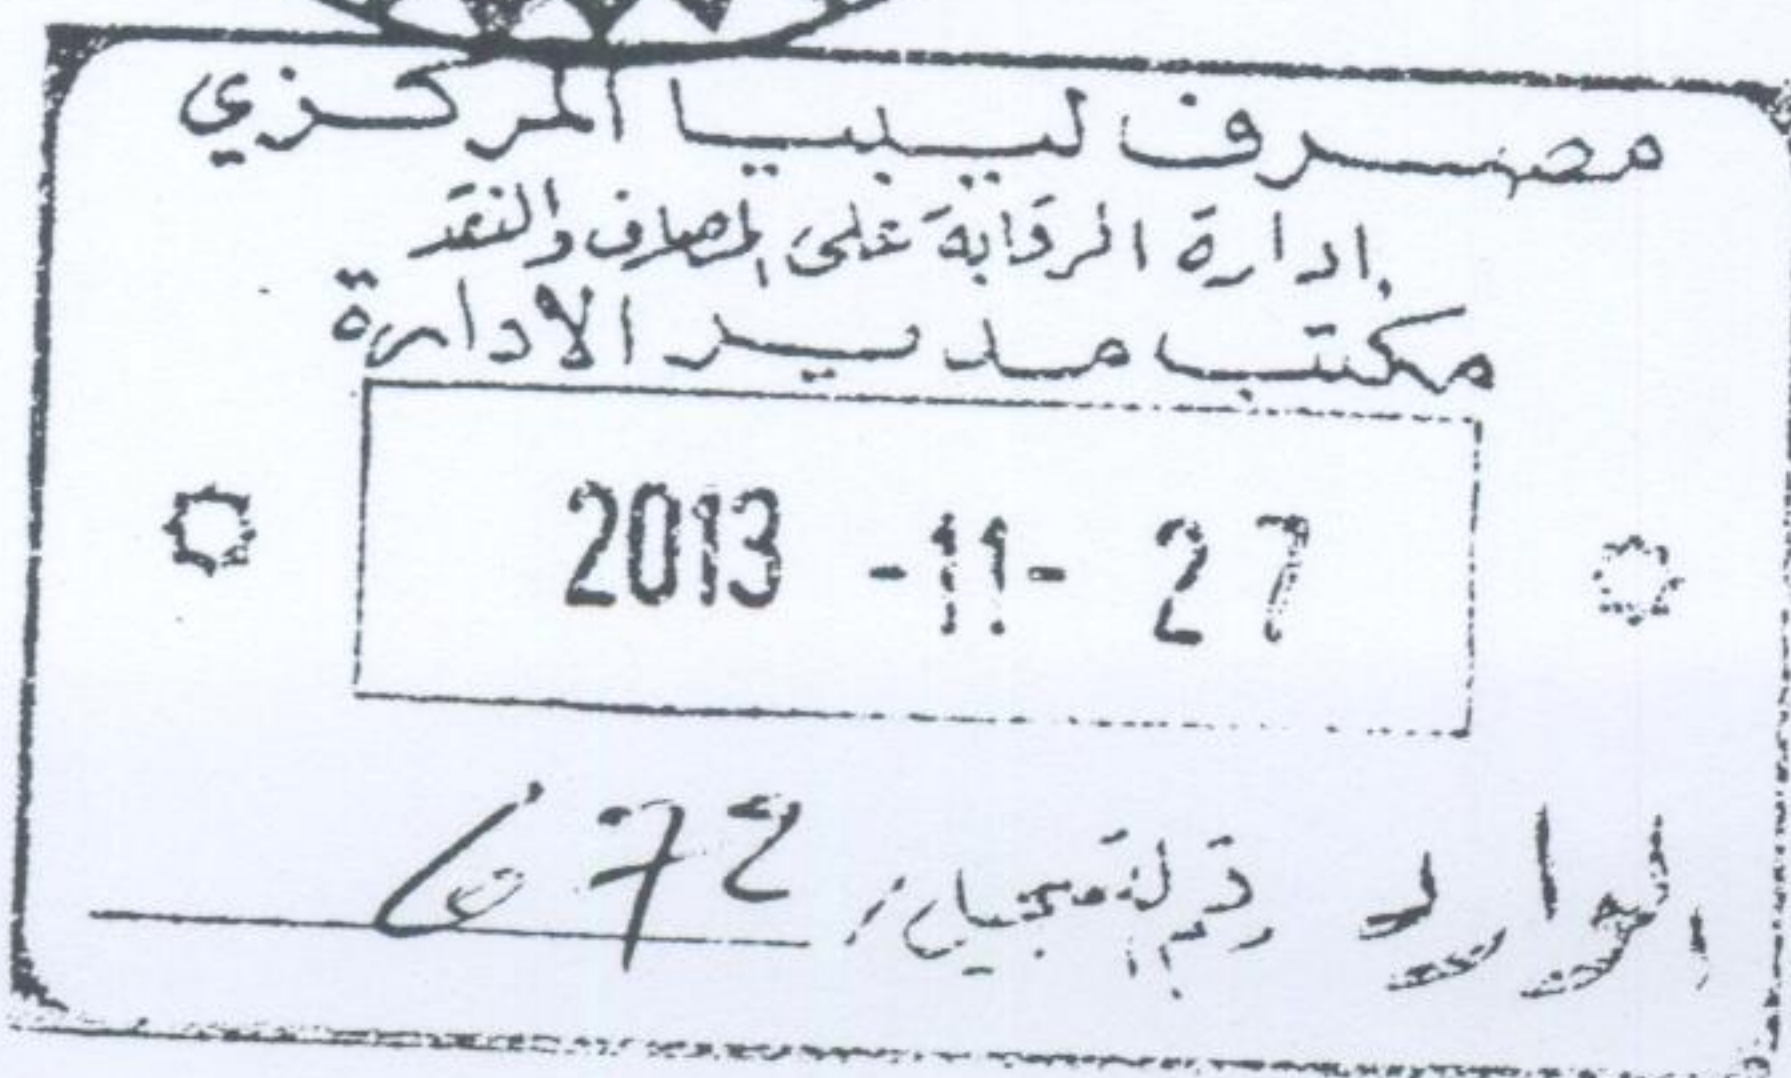 مصرف ليبيا المركزي
إدارة الرقابة على المصارف والنقد
مكتب مدير الادارة
2013 -11- 27
الوارد رقم التسجيل / 672